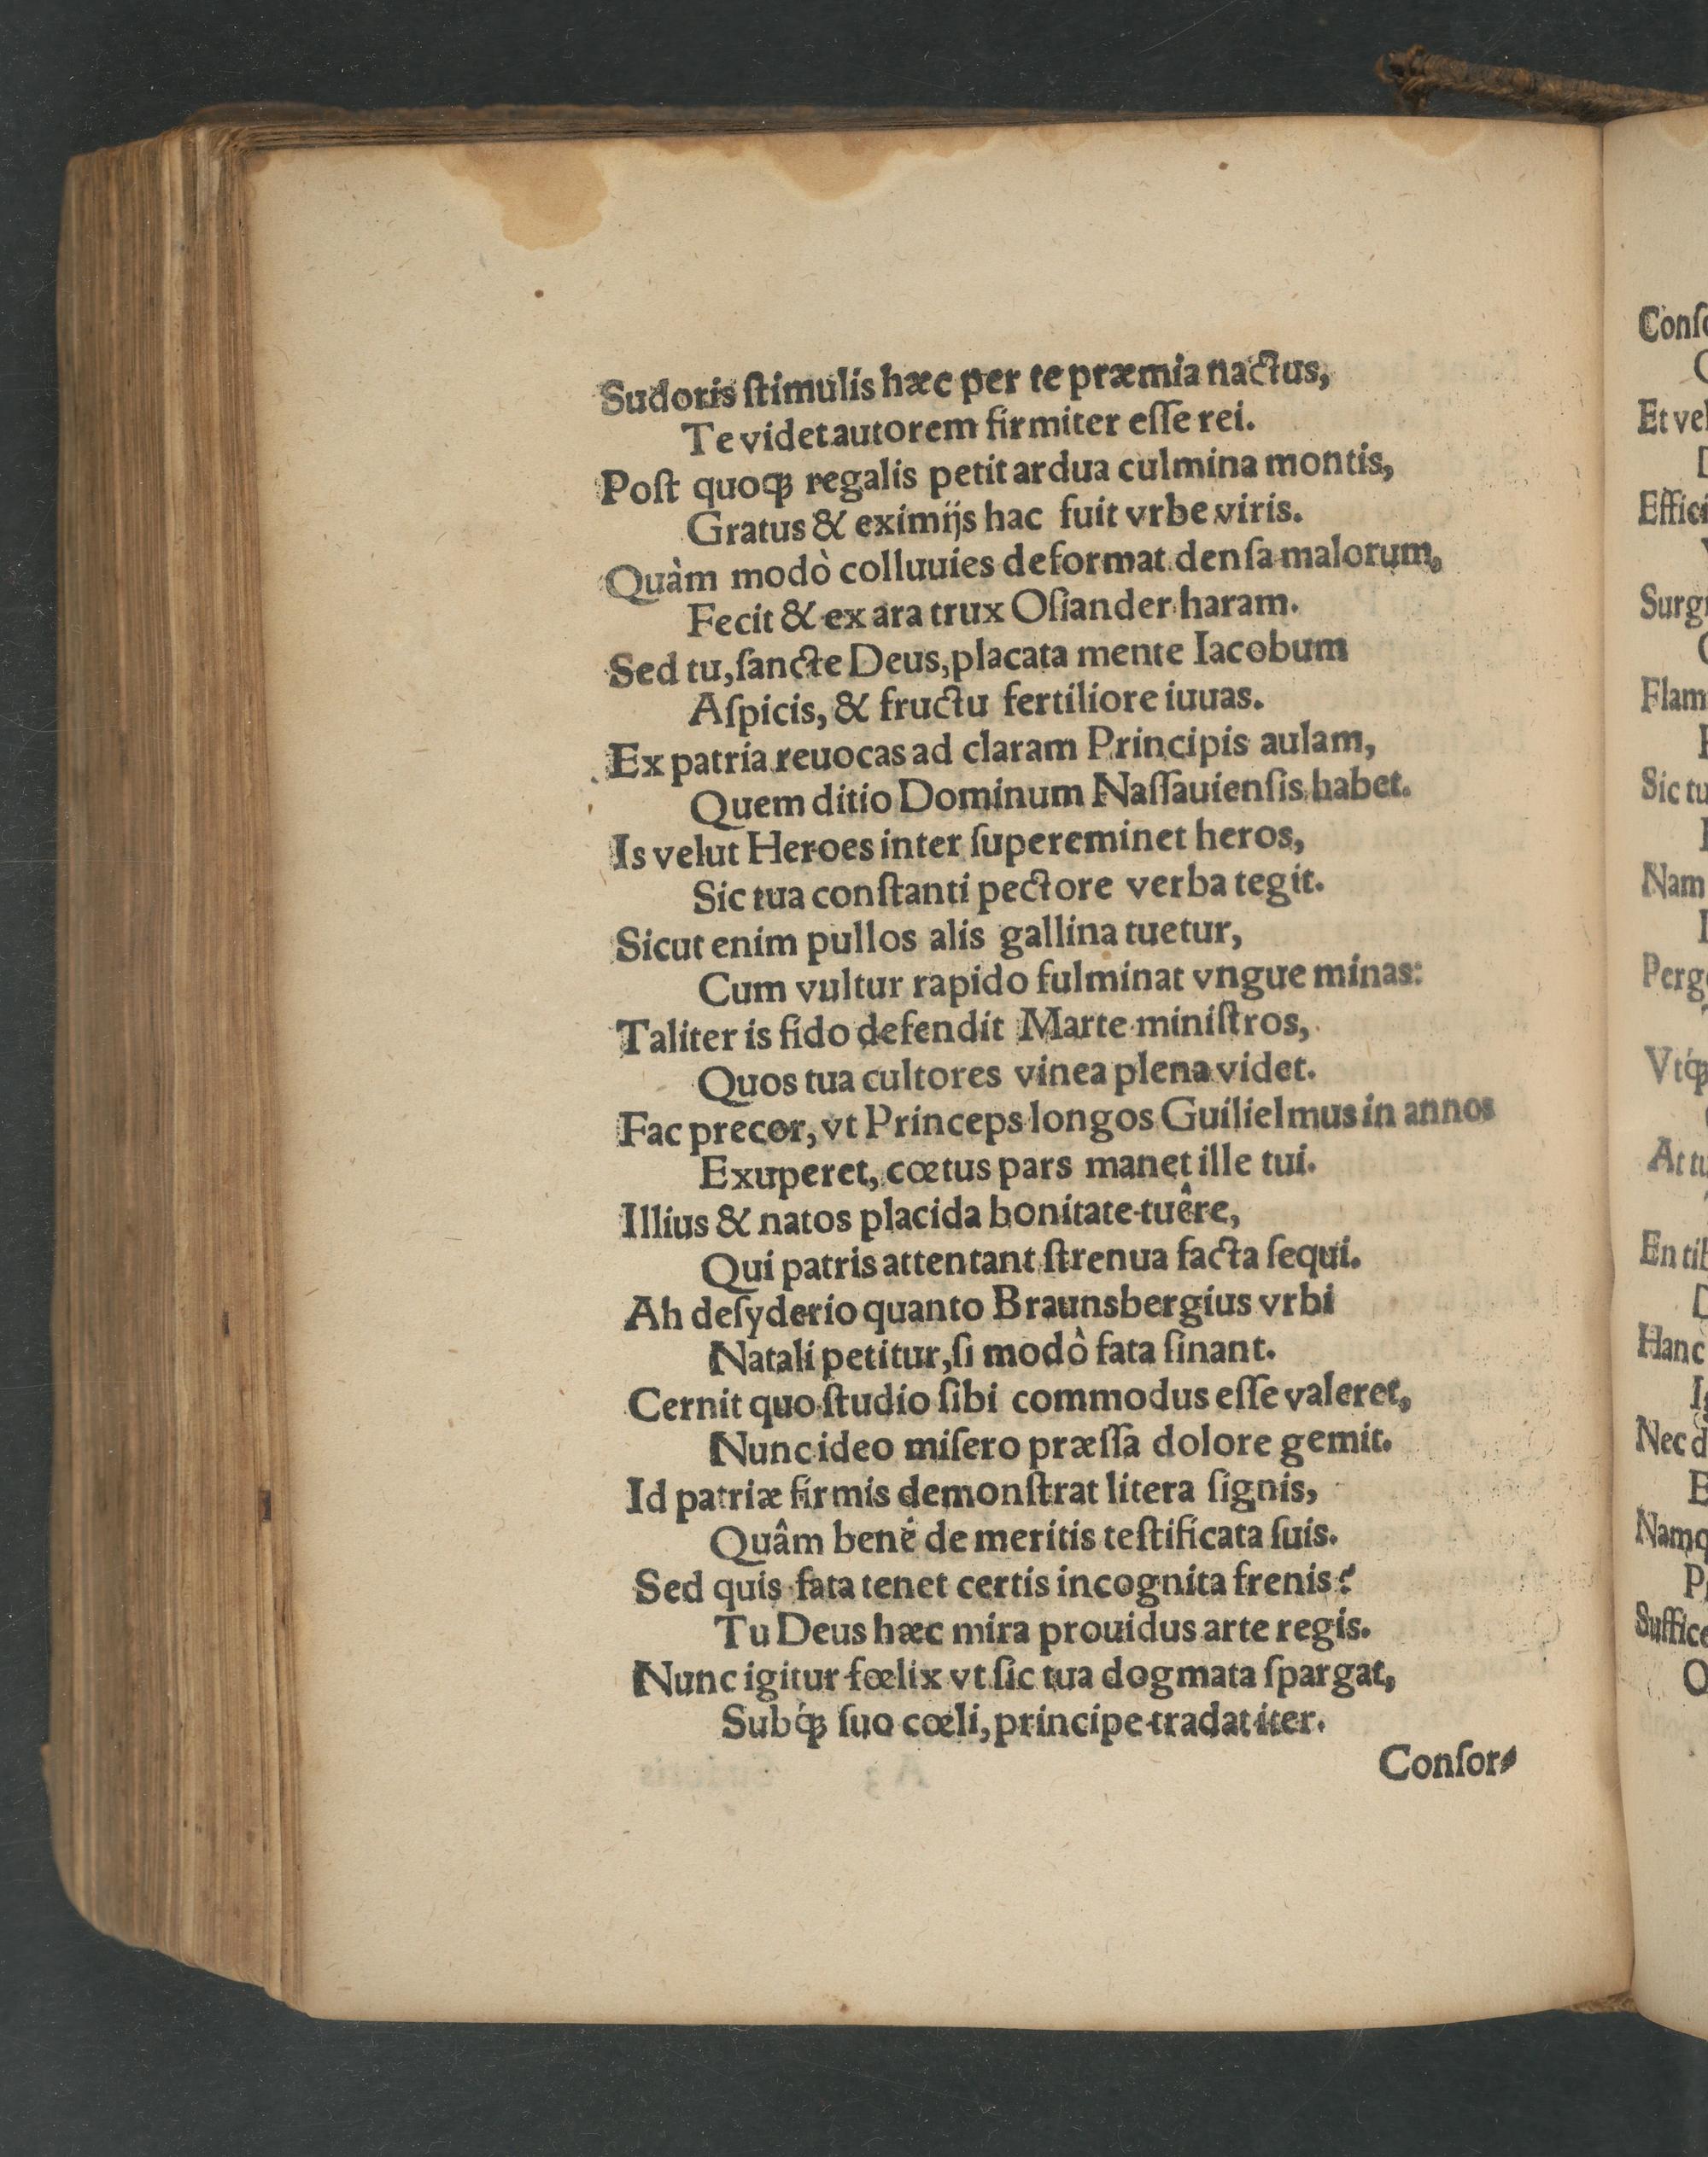 Sudoris ſtimulis hæc per te præmia nactus,
Te videt autorem firmiter eſſe rei.
Poſt quoqꝫ regalis petit ardua culmina montis,
Gratus & eximijs hac fuit vrbe viris.
Quàm modò colluuies deformat denſa malorum,
Fecit & ex ara trux Oſiander haram.
Sed tu, ſancte Deus, placata mente Iacobum
Aſpicis, & fructu fertiliore iuuas.
Ex patria reuocas ad claram Principis aulam,
Quem ditio Dominum Naſſauienſis habet.
Is velut Heroes inter ſupereminet heros,
Sic tua conſtanti pectore verba tegit.
Sicut enim pullos alis gallina tuetur,
Cum vultur rapido fulminat vngue minas:
Taliter is fido defendit Marte miniſtros,
Quos tua cultores vinea plena videt.
Fac precor, vt Princeps longos Guilielmus in annos
Exuperet, cœtus pars manet ille tui.
Illius & natos placida bonitate tuêre,
Qui patris attentant ſtrenua facta ſequi.
Ah deſyderio quanto Braunsbergius vrbi
Natali petitur, ſi modò fata ſinant.
Cernit quo ſtudio ſibi commodus eſſe valeret,
Nunc ideo miſero præſſa dolore gemit.
Id patriæ firmis demonſtrat litera ſignis,
Quâm bené de meritis teſtificata ſuis.
Sed quis fata tenet certis incognita frenis?
Tu Deus hæc mira prouidus arte regis.
Nunc igitur fœlix vt ſic tua dogmata ſpargat,
Subq́ꝫ ſuo cœli, principe tradat iter.
Conſor⸗
Et vel
Surg
Flam
Sic tu
Nam
Perg
At tu
En tib
Hanc
Nec d
Namq
Suffice